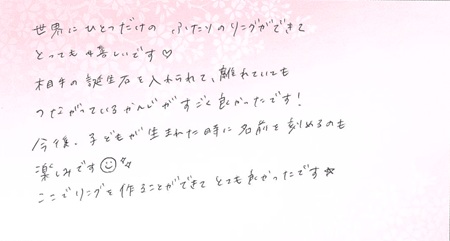 世界にひとつだけの ふたりのリングができて
とっても嬉しいです♡
相手の誕生石を入れられて、離れていても
つながっているかんじがすごく良かったです!
今後、子どもが生まれた時に名前を刻めるのも
楽しみです☺
ここでリングを作ることができてとても良かったです☆